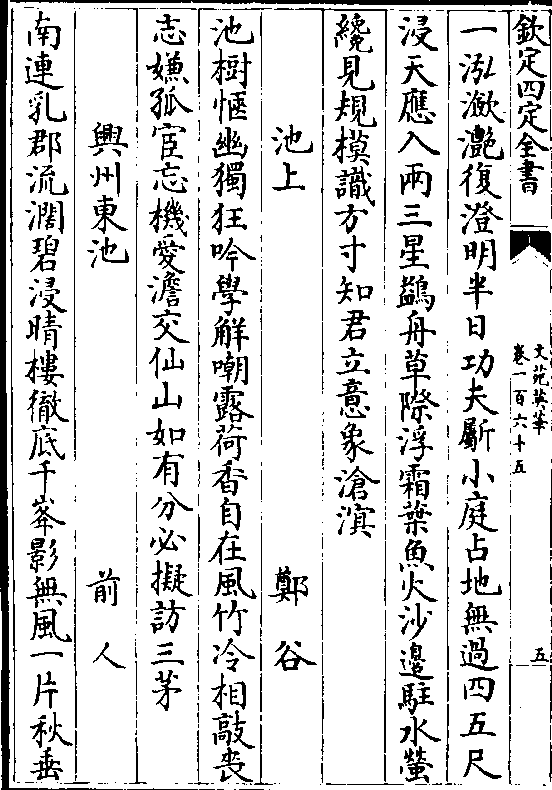 欽定四定全書
文苑英華
卷一百六十五
五
一泓瀲灔復澄明半日功夫斸小庭占地無過四五尺
浸天應入兩三星鷁舟草際浮霜葉魚火沙邊駐水螢
纔見規模識方寸知君立意象滄溟
池上
鄭谷
池樹愜幽獨狂吟學解嘲露荷香自在風竹冷相敲喪
志嫌孤宦忘機愛澹交仙山如有分必擬訪三茅
興州東池
前人
南連乳郡流濶碧浸晴樓徹底千峯影無風一片秋垂